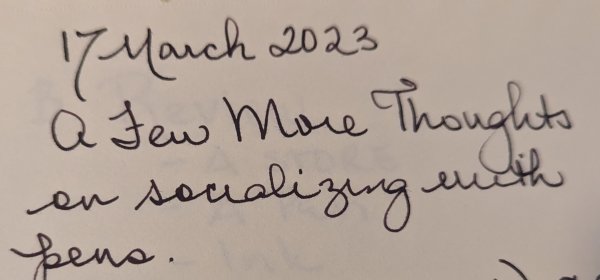 17 March 2023
A Few More Thoughts
on socializing with
pens.